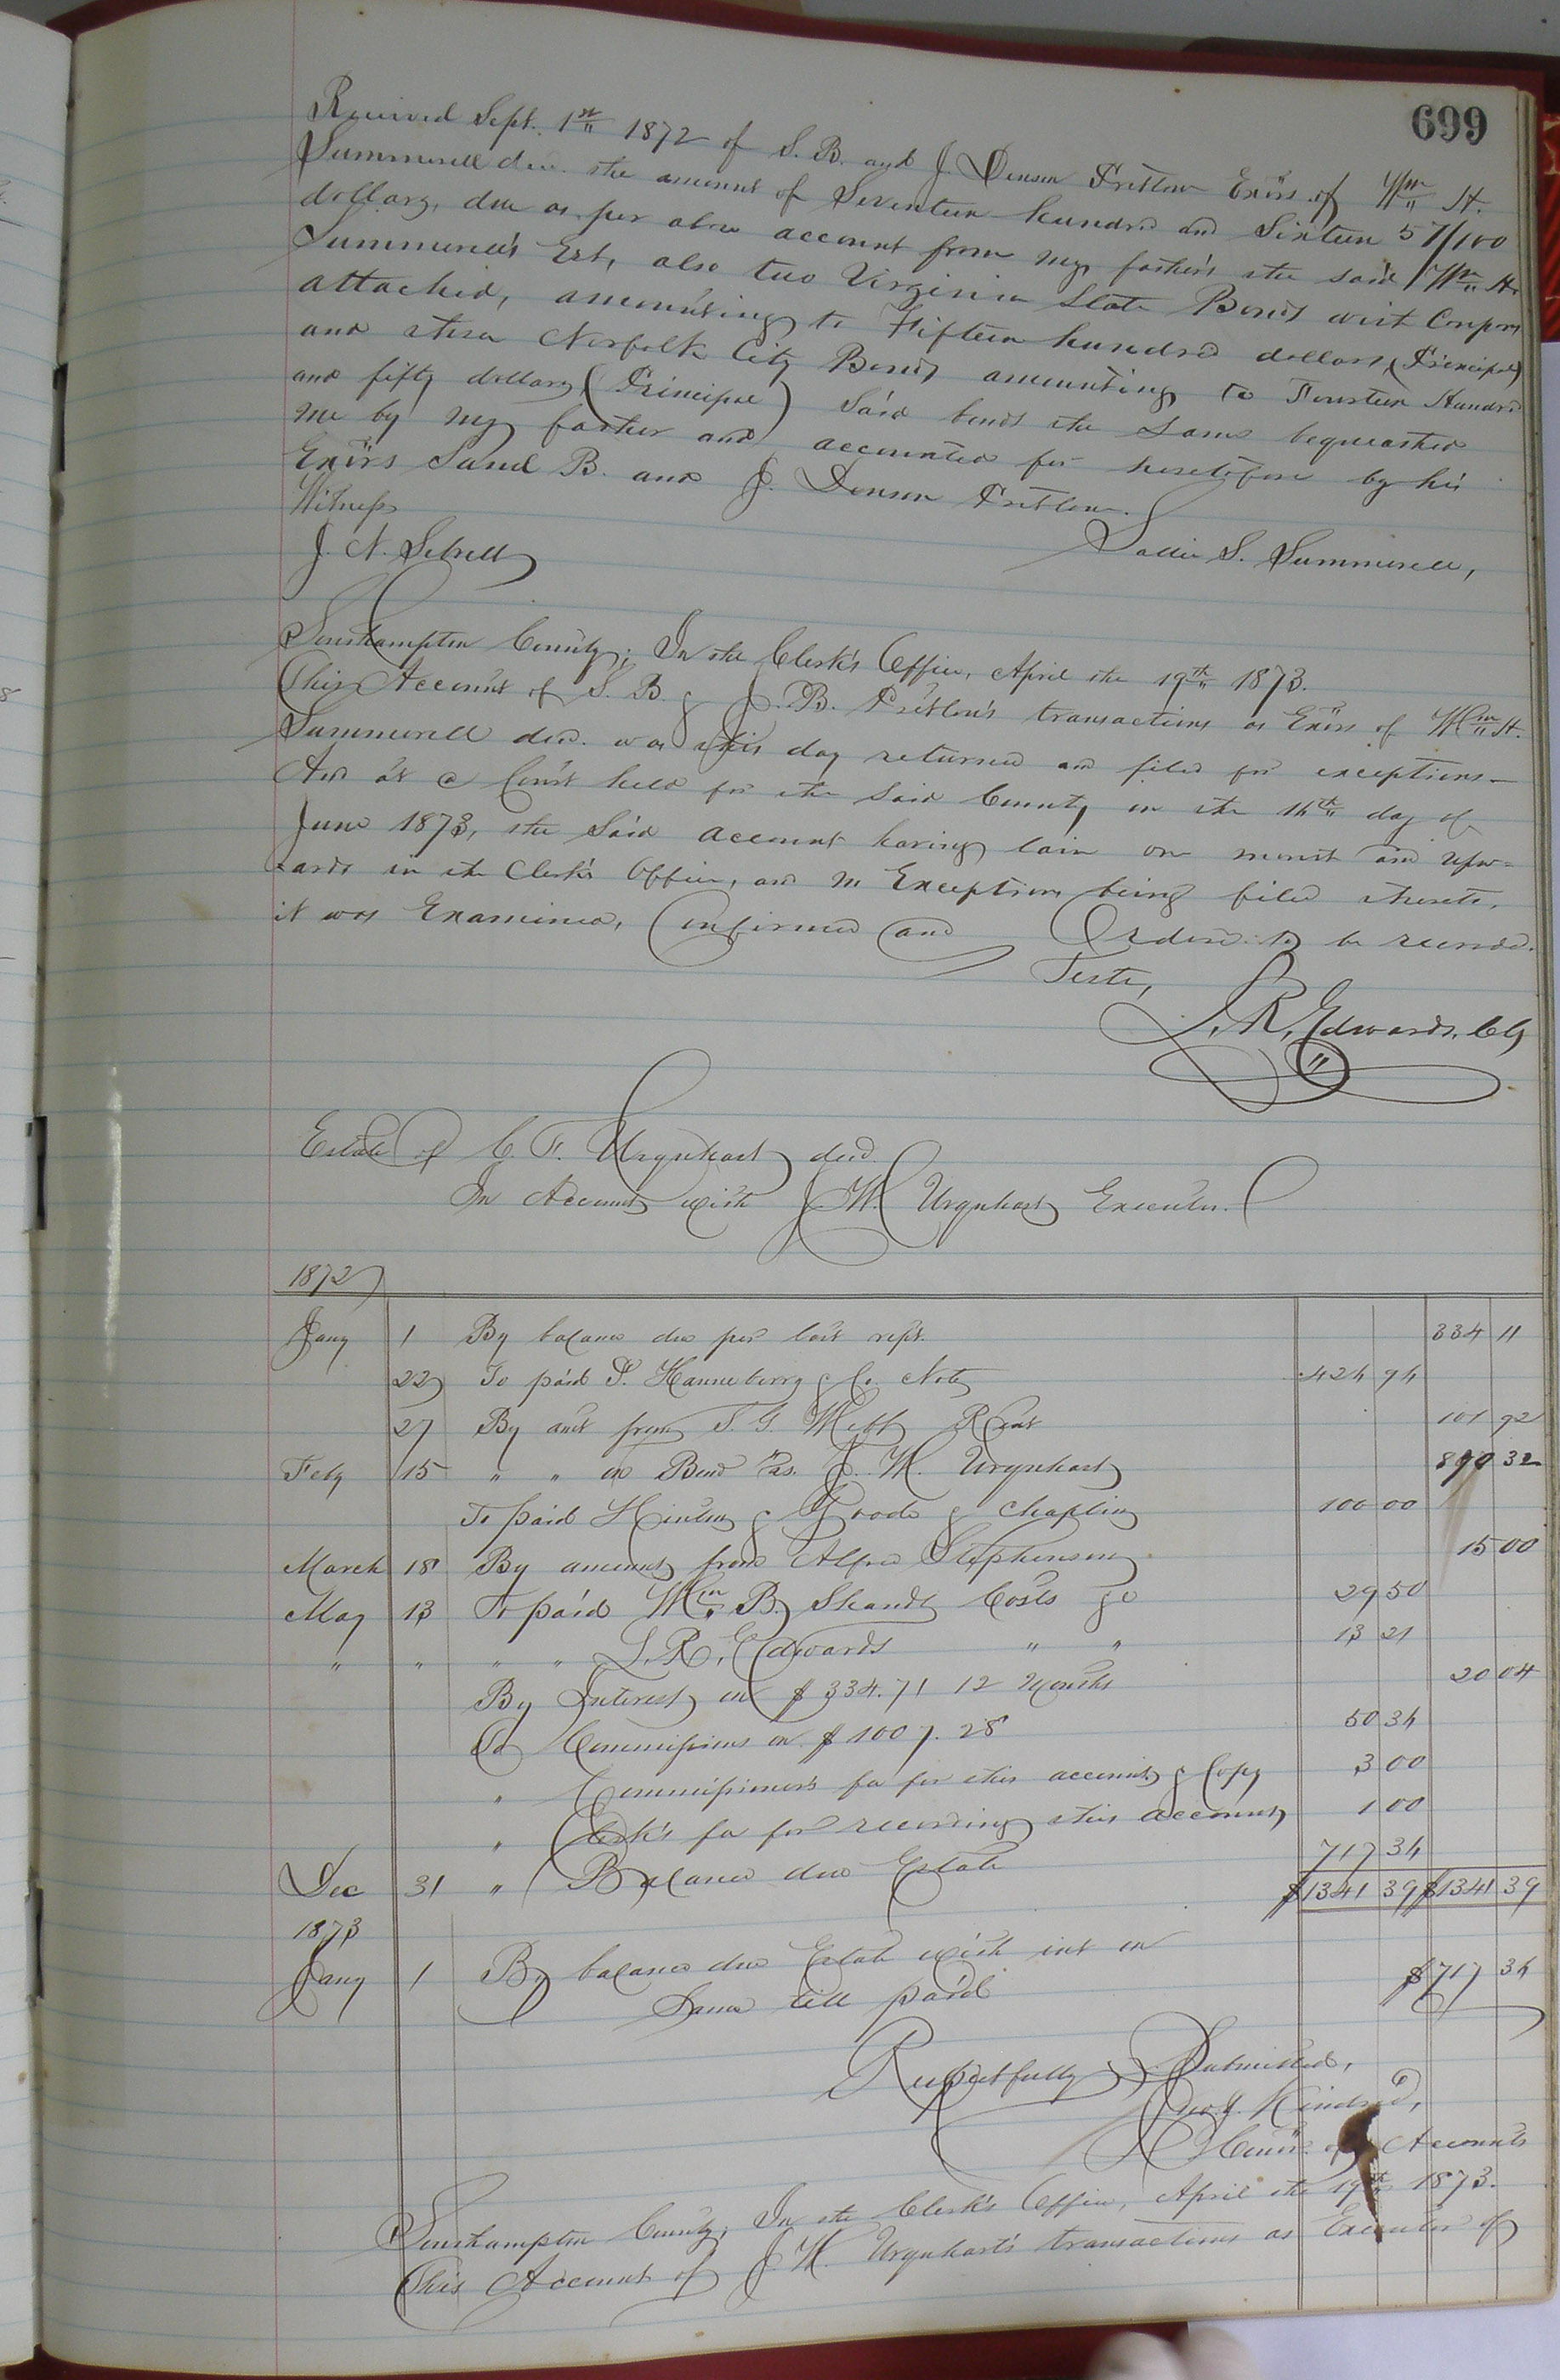 699
Received Sept. 1st 1872 of S. B. and J. Denson Pretlow Exors of Wm H.
Summerell decd. the amount of Seventeen hundred and Sixteen 57/100
dollars, due as per above account from my father's the said Wm H.
Summerell's Est, also two Virginia State Bonds with Coupons
attached, amounting to Fifteen hundred dollars, (Principal)
and three Norfolk City Bonds amounting to Fourteen Hundred
and fifty dollars (Principal) Said bonds the same bequeathed
me by my father and accounted for heretofore by his
Exors Saml B. and J. Denson Pretlow.
Witness
J. N. Sebrell
Sallie S. Summerell,
Southampton County; In the Clerk's Office, April the 19th 1873.
This Account of S. B. & J. B. Pretlow's transactions as Exors of Wm H.
Summerell decd. was this day returned and filed for exceptions—
And at a Court held for the Said County on the 16th day of
June 1873, the Said account having lain one month and upw=
=ards in the Clerk's Office, and no Exceptions being filed thereto,
it was Examined, Confirmed and Ordered to be recorded.
Teste,
L. R. Edwards, Clk
Estate of C. F. Urquhart decd.
In Account with J. W. Urquhart Executor.
1872
Jany 1 By balance due per last rept. 334 11
22 To paid P. & Co. Note 424 94
27 By amt from T. G. Webb Rent 101 92
Feby 15 " " on Bond vs. J. W. Urquhart 890 32
To paid Hinton & Goode & Chaplin 100 00
March 18 By amount from Alfred Stephenson 15 00
May 13 To paid Wm B. Shands Costs &c 29 50
" " " " L. R. Edwards " " 13 21
By Interest on $334.71 12 Months 20 04
To Commissions on $1007.28 50 36
" Commissioner's fee for this account & Copy 3 00
" Clerk's fee for recording this account 1 00
Dec 31 " Balance due Estate 717 34
$1341 39 $1341 39
1873
Jany 1 By balance due Estate with int on $717 34
Same till paid
Respectfully Submitted,
Jno. J. Kindred,
Comr. of Accounts
Southampton County, In the Clerk's Office, April the 19th 1873.
This Account of J. W. Urquhart's transactions as Executor of